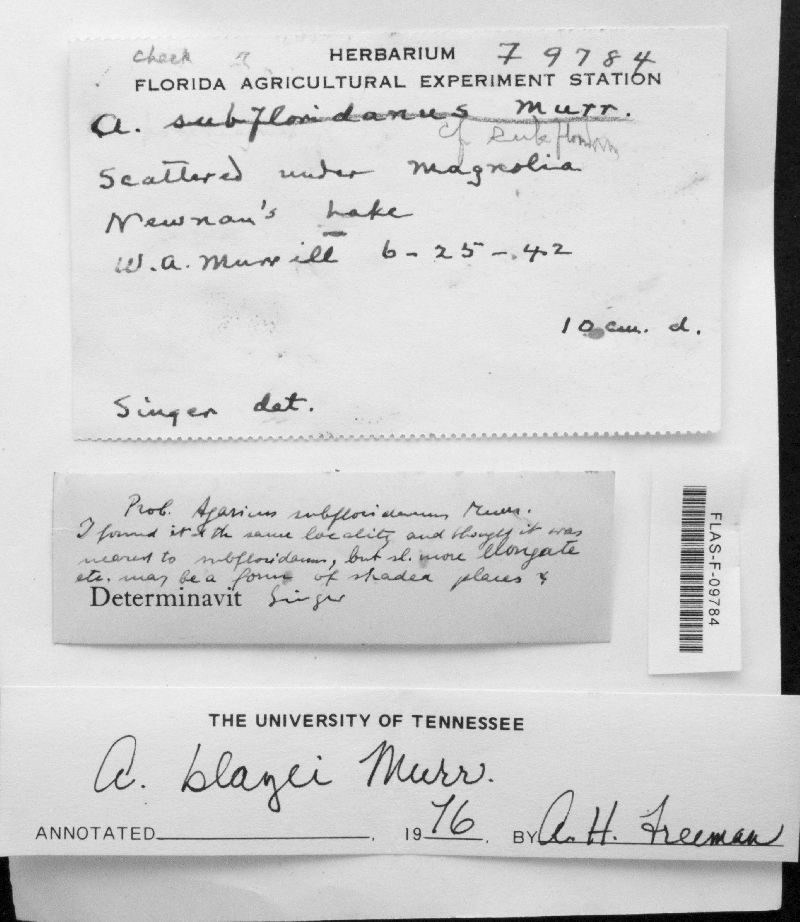 check ? HERBARIUM F 9784
FLORIDA AGRICULTURAL EXPERIMENT STATION
A. subfloridanus Murr.
cf subfloridan
Scattered under magnolia
Newnan's Lake
W.A. Murrill 6-25-42
10 cm. d.
Singer det.
Prob. Agaricus subfloridanus Murr.
I found it the same locality and thought it was
nearest to subfloridanus, but sl. more elongate
etc. may be a form of shaded places
Determinavit Singer
FLAS-F-09784
THE UNIVERSITY OF TENNESSEE
A. blazei Murr.
ANNOTATED , 1976 . BY A. H. Freeman